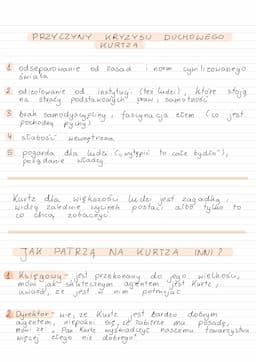 PRZYCZYNY KRYZYSU DUCHOWEGO
KURTZA
1 odseparowanie od zasad i norm cywilizowanego
świata
2 odizolowanie od instytucji (też ludzi), które stoją
na straży podstawowych praw, samotność
3 brak samodyscypliny, fascynacja złem (co jest
pochodną pychy)
4 słabość wewnętrzna
5 pogarda dla ludzi („wytępić to całe bydło"),
pożądanie władzy
Kurtz dla większości ludzi jest zagadką,
widzą zaledwie wycinek postaci albo tylko to
co chcą zobaczyć.
JAK PATRZĄ NA KURTZA INNI?
1 Księgowy - jest przekonany do jego wielkości,
mówi jak skutecznym agentem jest Kurtz,
uważa, że jest w nim potencjał
2 Dyrektor - wie, że Kurtz jest bardzo dobrym
agentem, niepokoi się, że zabierze mu posadę,
mówi że „Pan Kurtz wyświadczył naszemu towarzystwu
więcej złego niż dobrego"